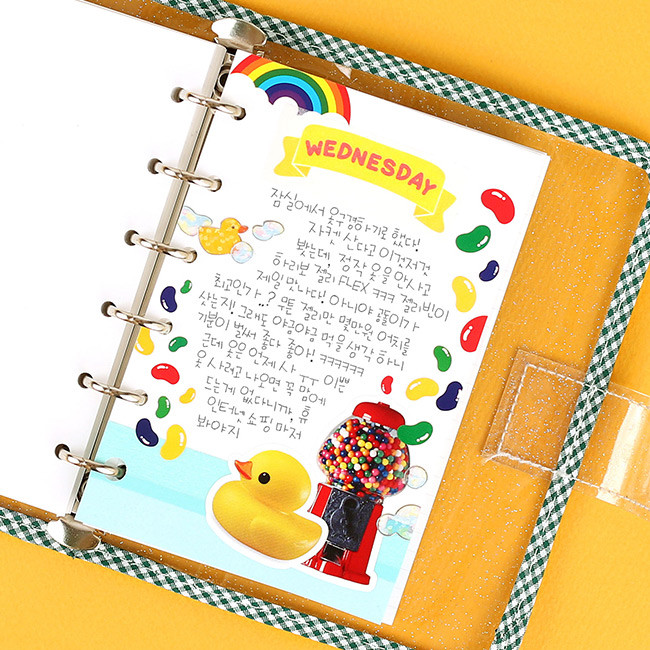 WEDNESDAY
잠실에서 옷구경하기로 했다!
자켓 산다고 이것저것
봤는데, 정작 옷을 안사고
하리보 젤리 FLEX ㅋㅋㅋ 젤리빈이
제일 맛나다! 아니야 곰돌이가
최고인가..? 무튼 젤리만 몇만원 어치를
샀는지! 그래도 야금야금 먹을 생각 하니
기분이 벌써 좋다 좋아! ㅋㅋㅋㅋㅋㅋ
근데 옷은 언제 사 ㅜㅜ 이쁜
옷 사려고 나오면 꼭 맘에
드는게 없다니까, 휴
인터넷 쇼핑 마저
봐야지